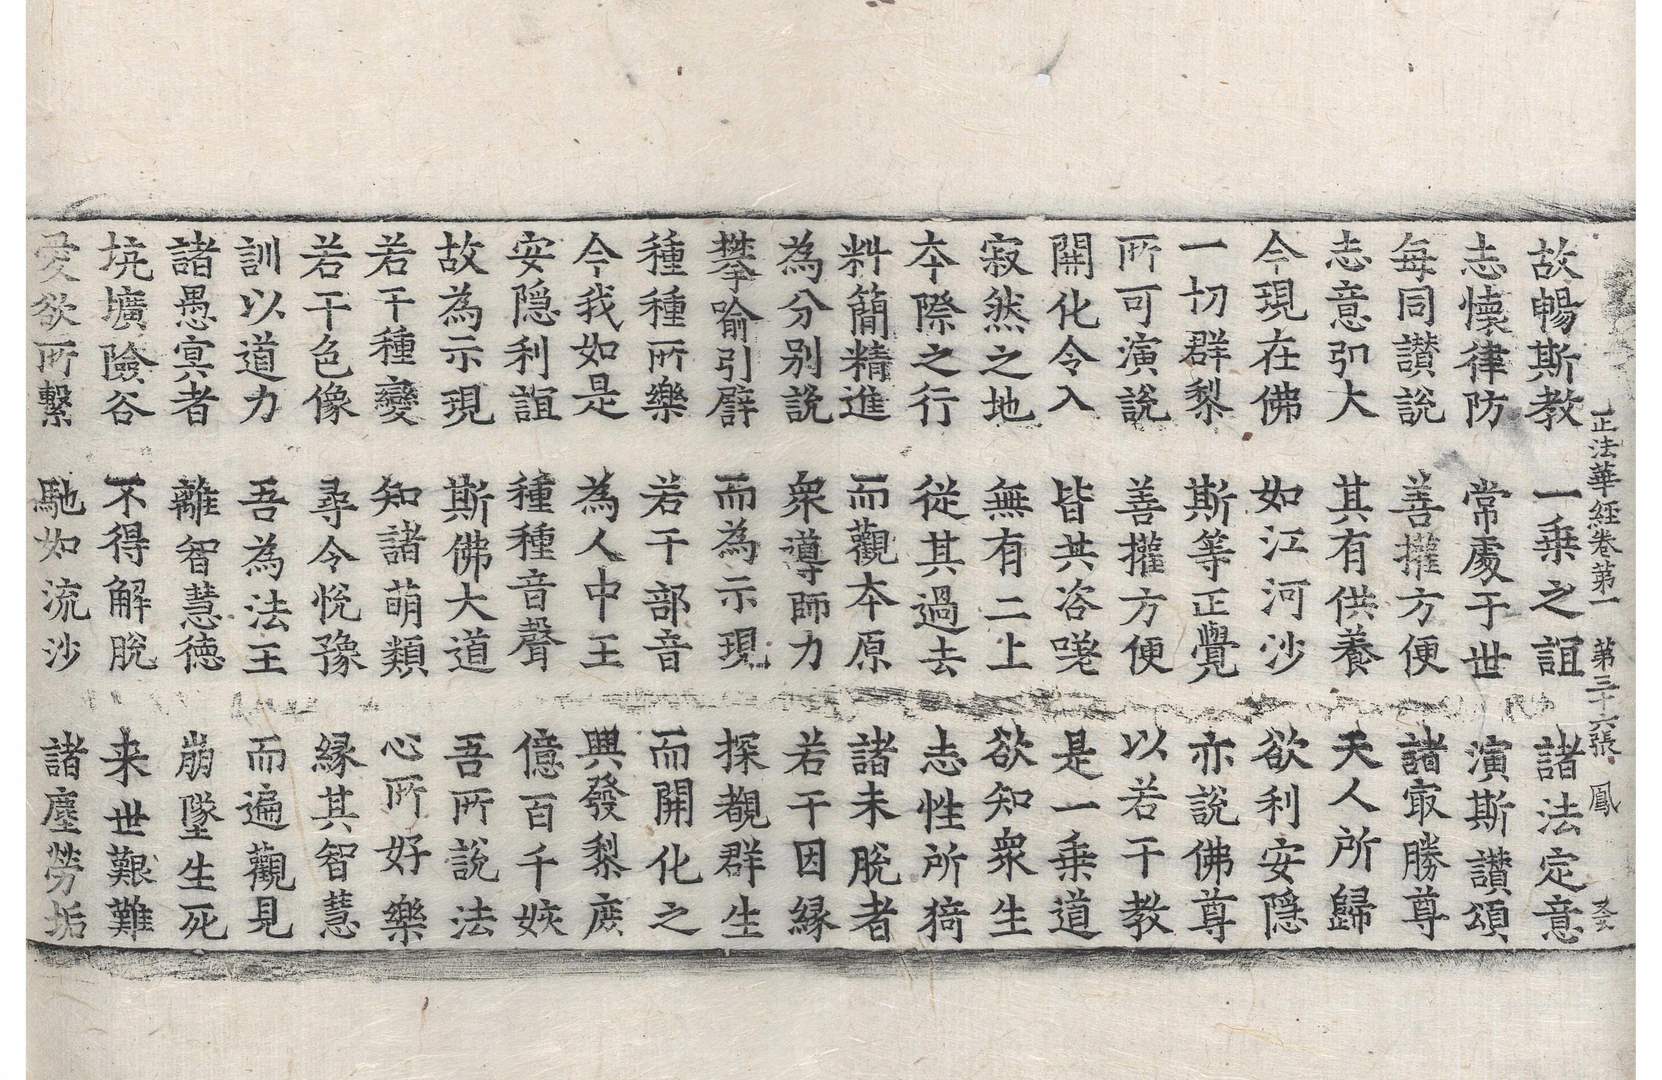 正法華経卷第一 第三十六張 鳳
故暢斯教 一乗之誼 諸法定意
志懷律防 常處于世 演斯讃頌
每同讃說 善權方便 諸㝡勝尊
志意弘大 其有供養 天人所歸
今現在佛 如江河沙 欲利安隱
一切群黎 斯等正覺 亦說佛尊
所可演說 善權方便 以若干教
開化令入 皆共咨嗟 是一乗道
寂然之地 無有二上 欲知衆生
本際之行 從其過去 志性所猗
料簡精進 而觀本原 諸未脫者
為分别說 衆導師力 若干因緣
攀喻引譬 而為示現 探覩群生
種種所樂 若干部音 而開化之
今我如是 為人中王 興發黎庶
安隱利誼 種種音聲 億百千姟
故為示現 斯佛大道 吾所說法
若干種變 知諸萌類 心所好樂
若干色像 尋令悅豫 緣其智慧
訓以道力 吾為法王 而遍觀見
諸愚冥者 離智慧德 崩墜生死
坑壙險谷 不得解脫 来世艱難
愛欲所繫 馳如流沙 諸塵勞垢